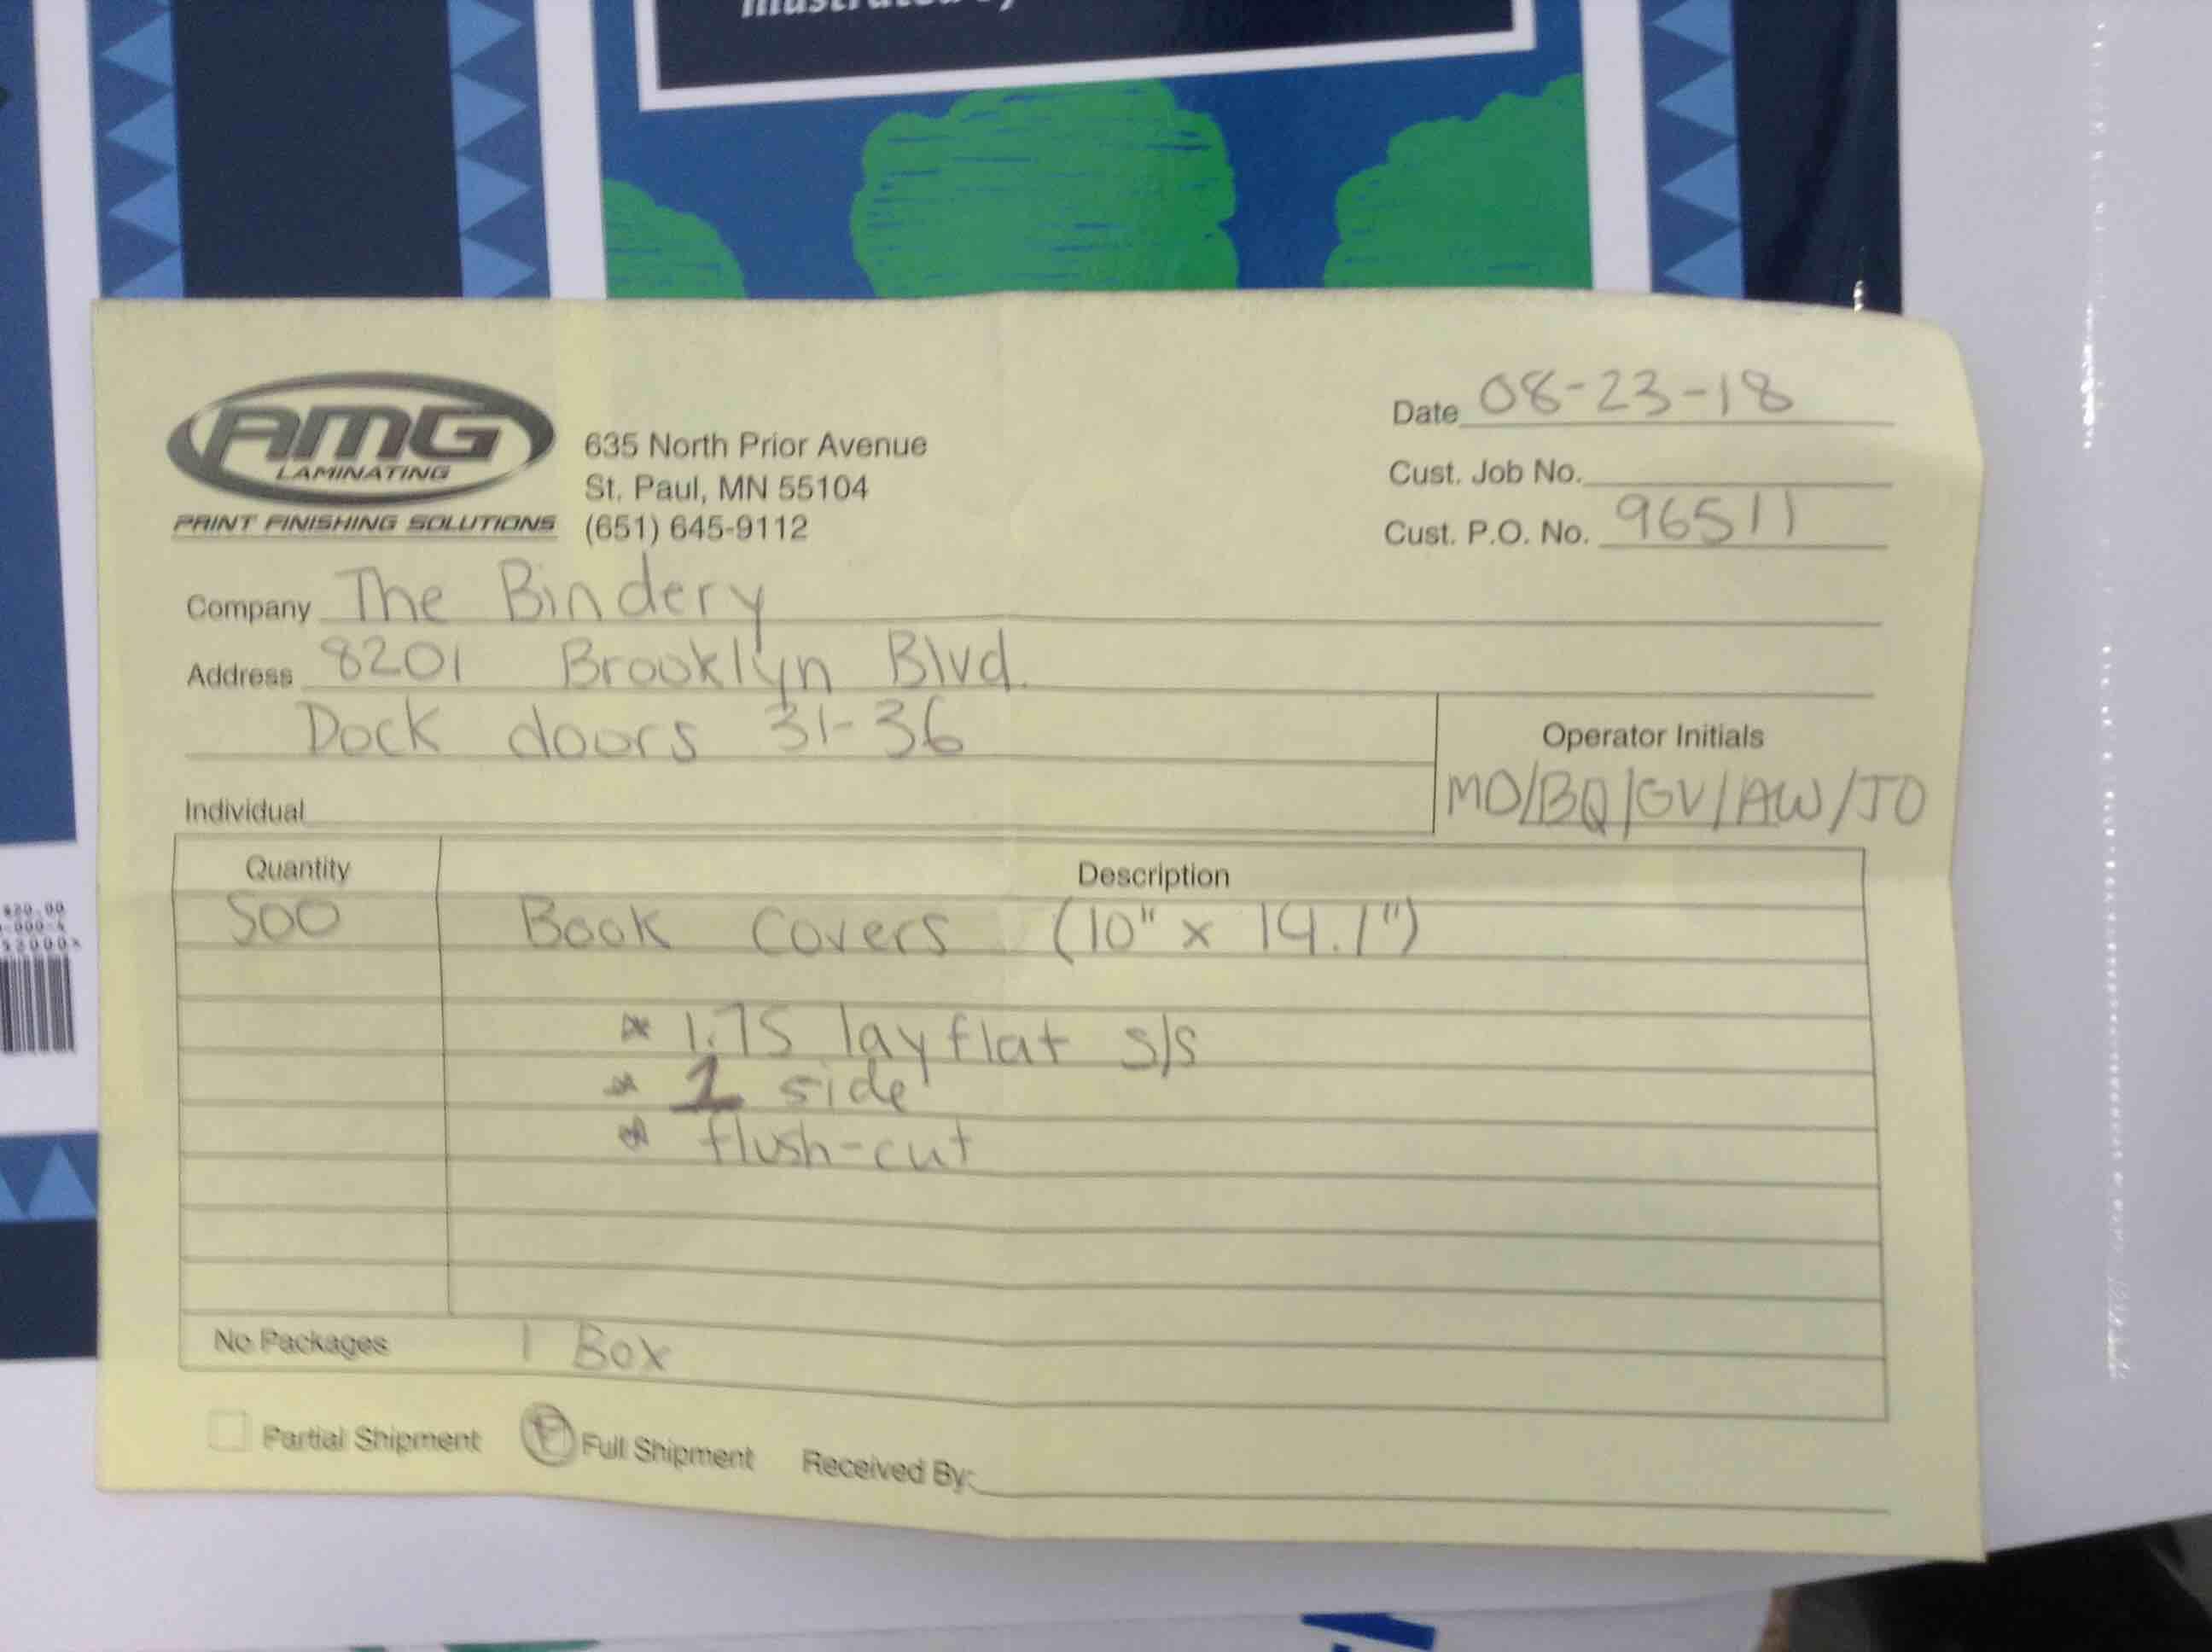 AMG
LAMINATING
PRINT FINISHING SOLUTIONS
635 North Prior Avenue
St. Paul, MN 55104
(651) 645-9112
Date 08-23-18
Cust. Job No.
Cust. P.O. No. 96511
Company The Bindery
Address 8201 Brooklyn Blvd.
Dock doors 31-36
Operator Initials
MO/BQ/GV/AW/JO
Individual
Quantity Description
500 Book Covers (10" x 14.1")
* 1.75 layflat s/s
* 1 side
* flush-cut
No Packages 1 Box
Partial Shipment Full Shipment Received By: